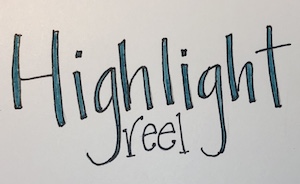 Highlight
reel